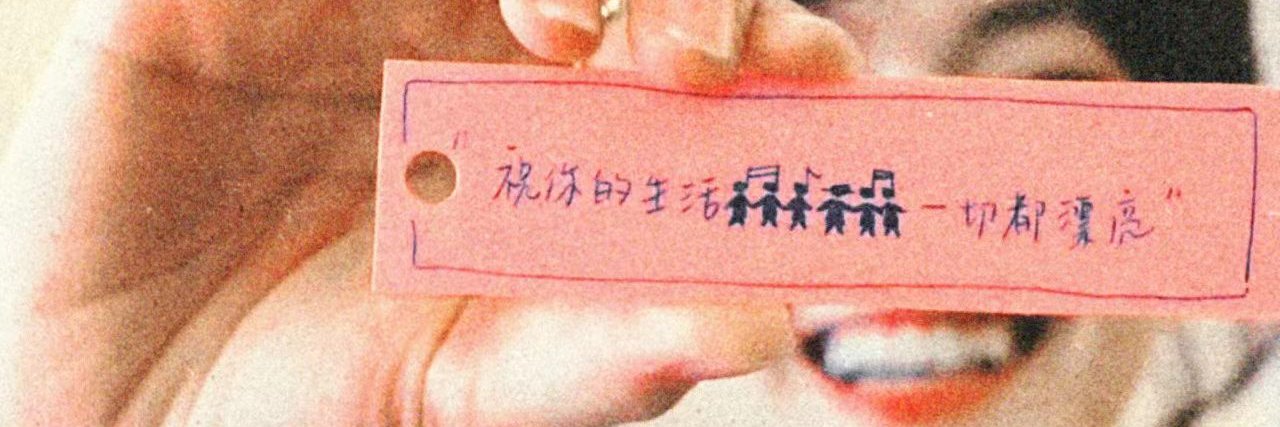 "祝你的生活一切都漂亮"